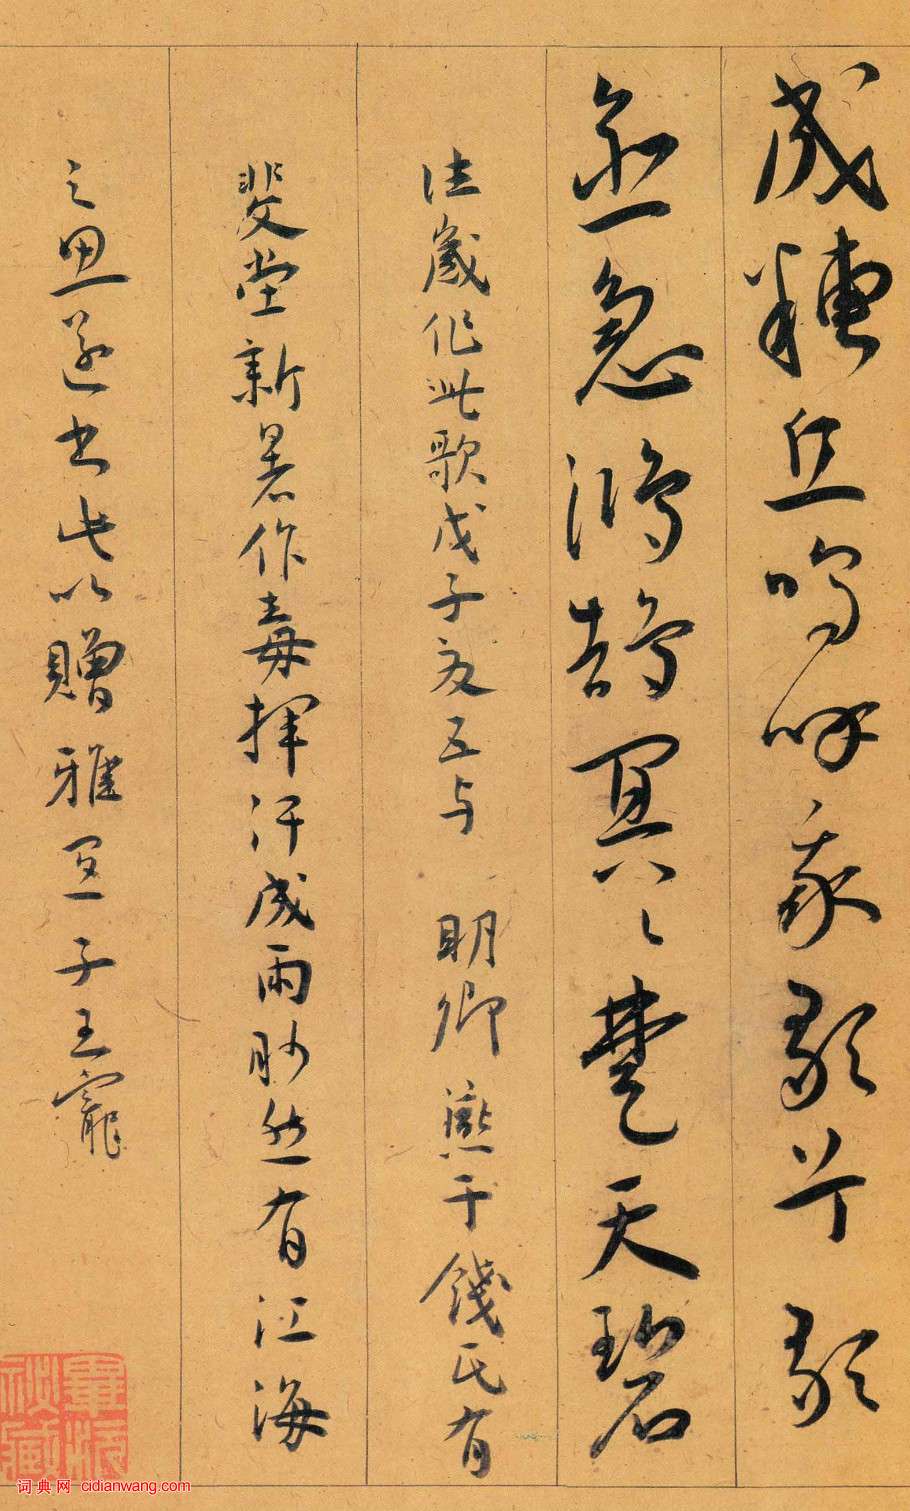 成糟丘嗚呼我歌兮歌
急鴻鵠冥〻楚天碧
往歲作此歌戊子夏五与 明卿燕于錢氏有
斐堂新暑作毒揮汗成雨眇然有江海
之思遂书此以贈雅宜子王寵
词典网 cidianwang.com